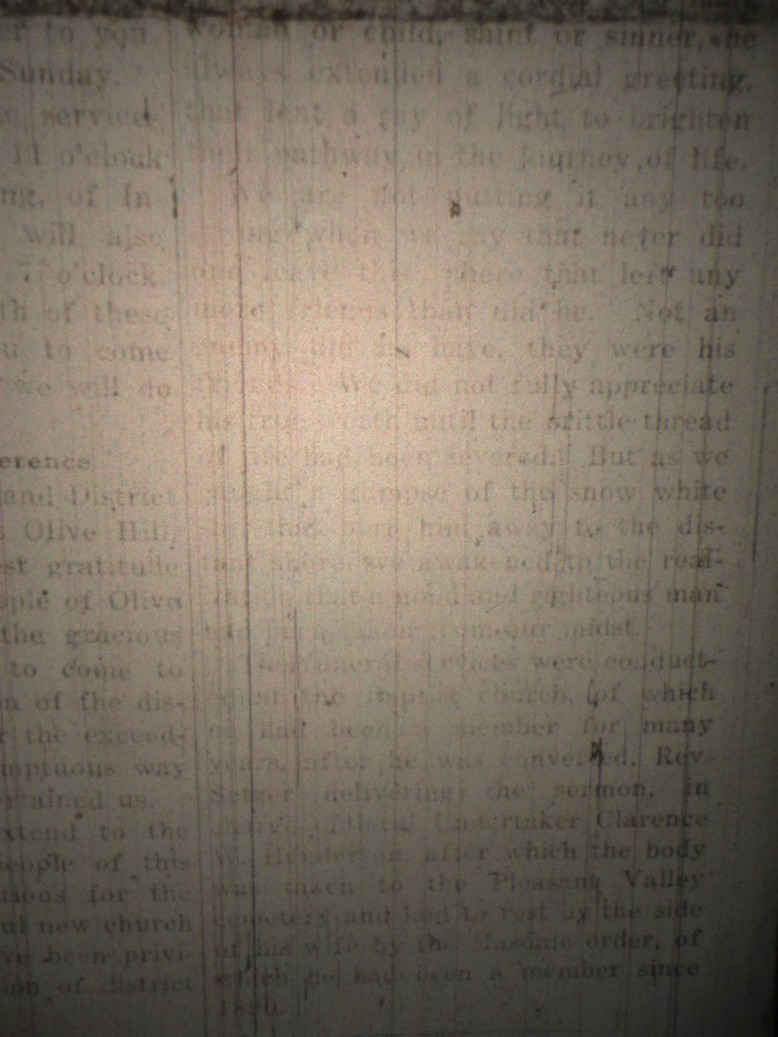 er to you.
Sunday.
service
11 o'clock
ng, of In
will also
7 o'clock
th of these
u to come
we will do
erence
and District
Olive Hill,
est gratitude
ple of Olive
the gracious
to come to
n of fhe dis-
r the exceed-
mptuous way
ertained us.
xtend to the
people of this
tions for the
ul new church
ve been privi-
ion of district
woman or child, saint or sinner, he
always extended a cordial greeting,
that lent a ray of light to brighten
their pathway in the journey of life.
We are not putting it any too
when we say that never did
one leave this sphere that left any
more friends than did he. Not an
enemy did he have, they were his
friends. We did not fully appreciate
his true worth until the brittle thread
of life had been severed. But as we
caught a glimpse of the snow white
that bore him away to the dis-
tant shore we awakened to the real-
that a good and righteous man
had been taken from our midst.
The funeral services were conduct-
the Baptist church, of which
he had been a member for many
years, after he was converted, Rev.
Setzer delivering the sermon, in
charge of local Undertaker Clarence
W. Henderson, after which the body
was taken to the Pleasant Valley
cemetery and laid to rest by the side
of his wife by the Masonic order, of
which he had been a member since
1890.